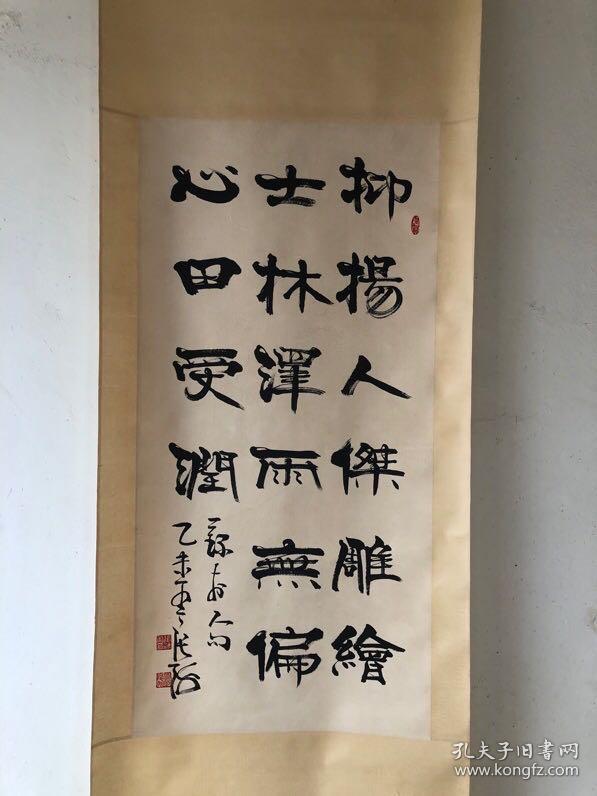 抑揚人傑雕繪
士林澤雨無偏
心田受潤
古人句
乙未
孔夫子旧書网
www.kongfz.com